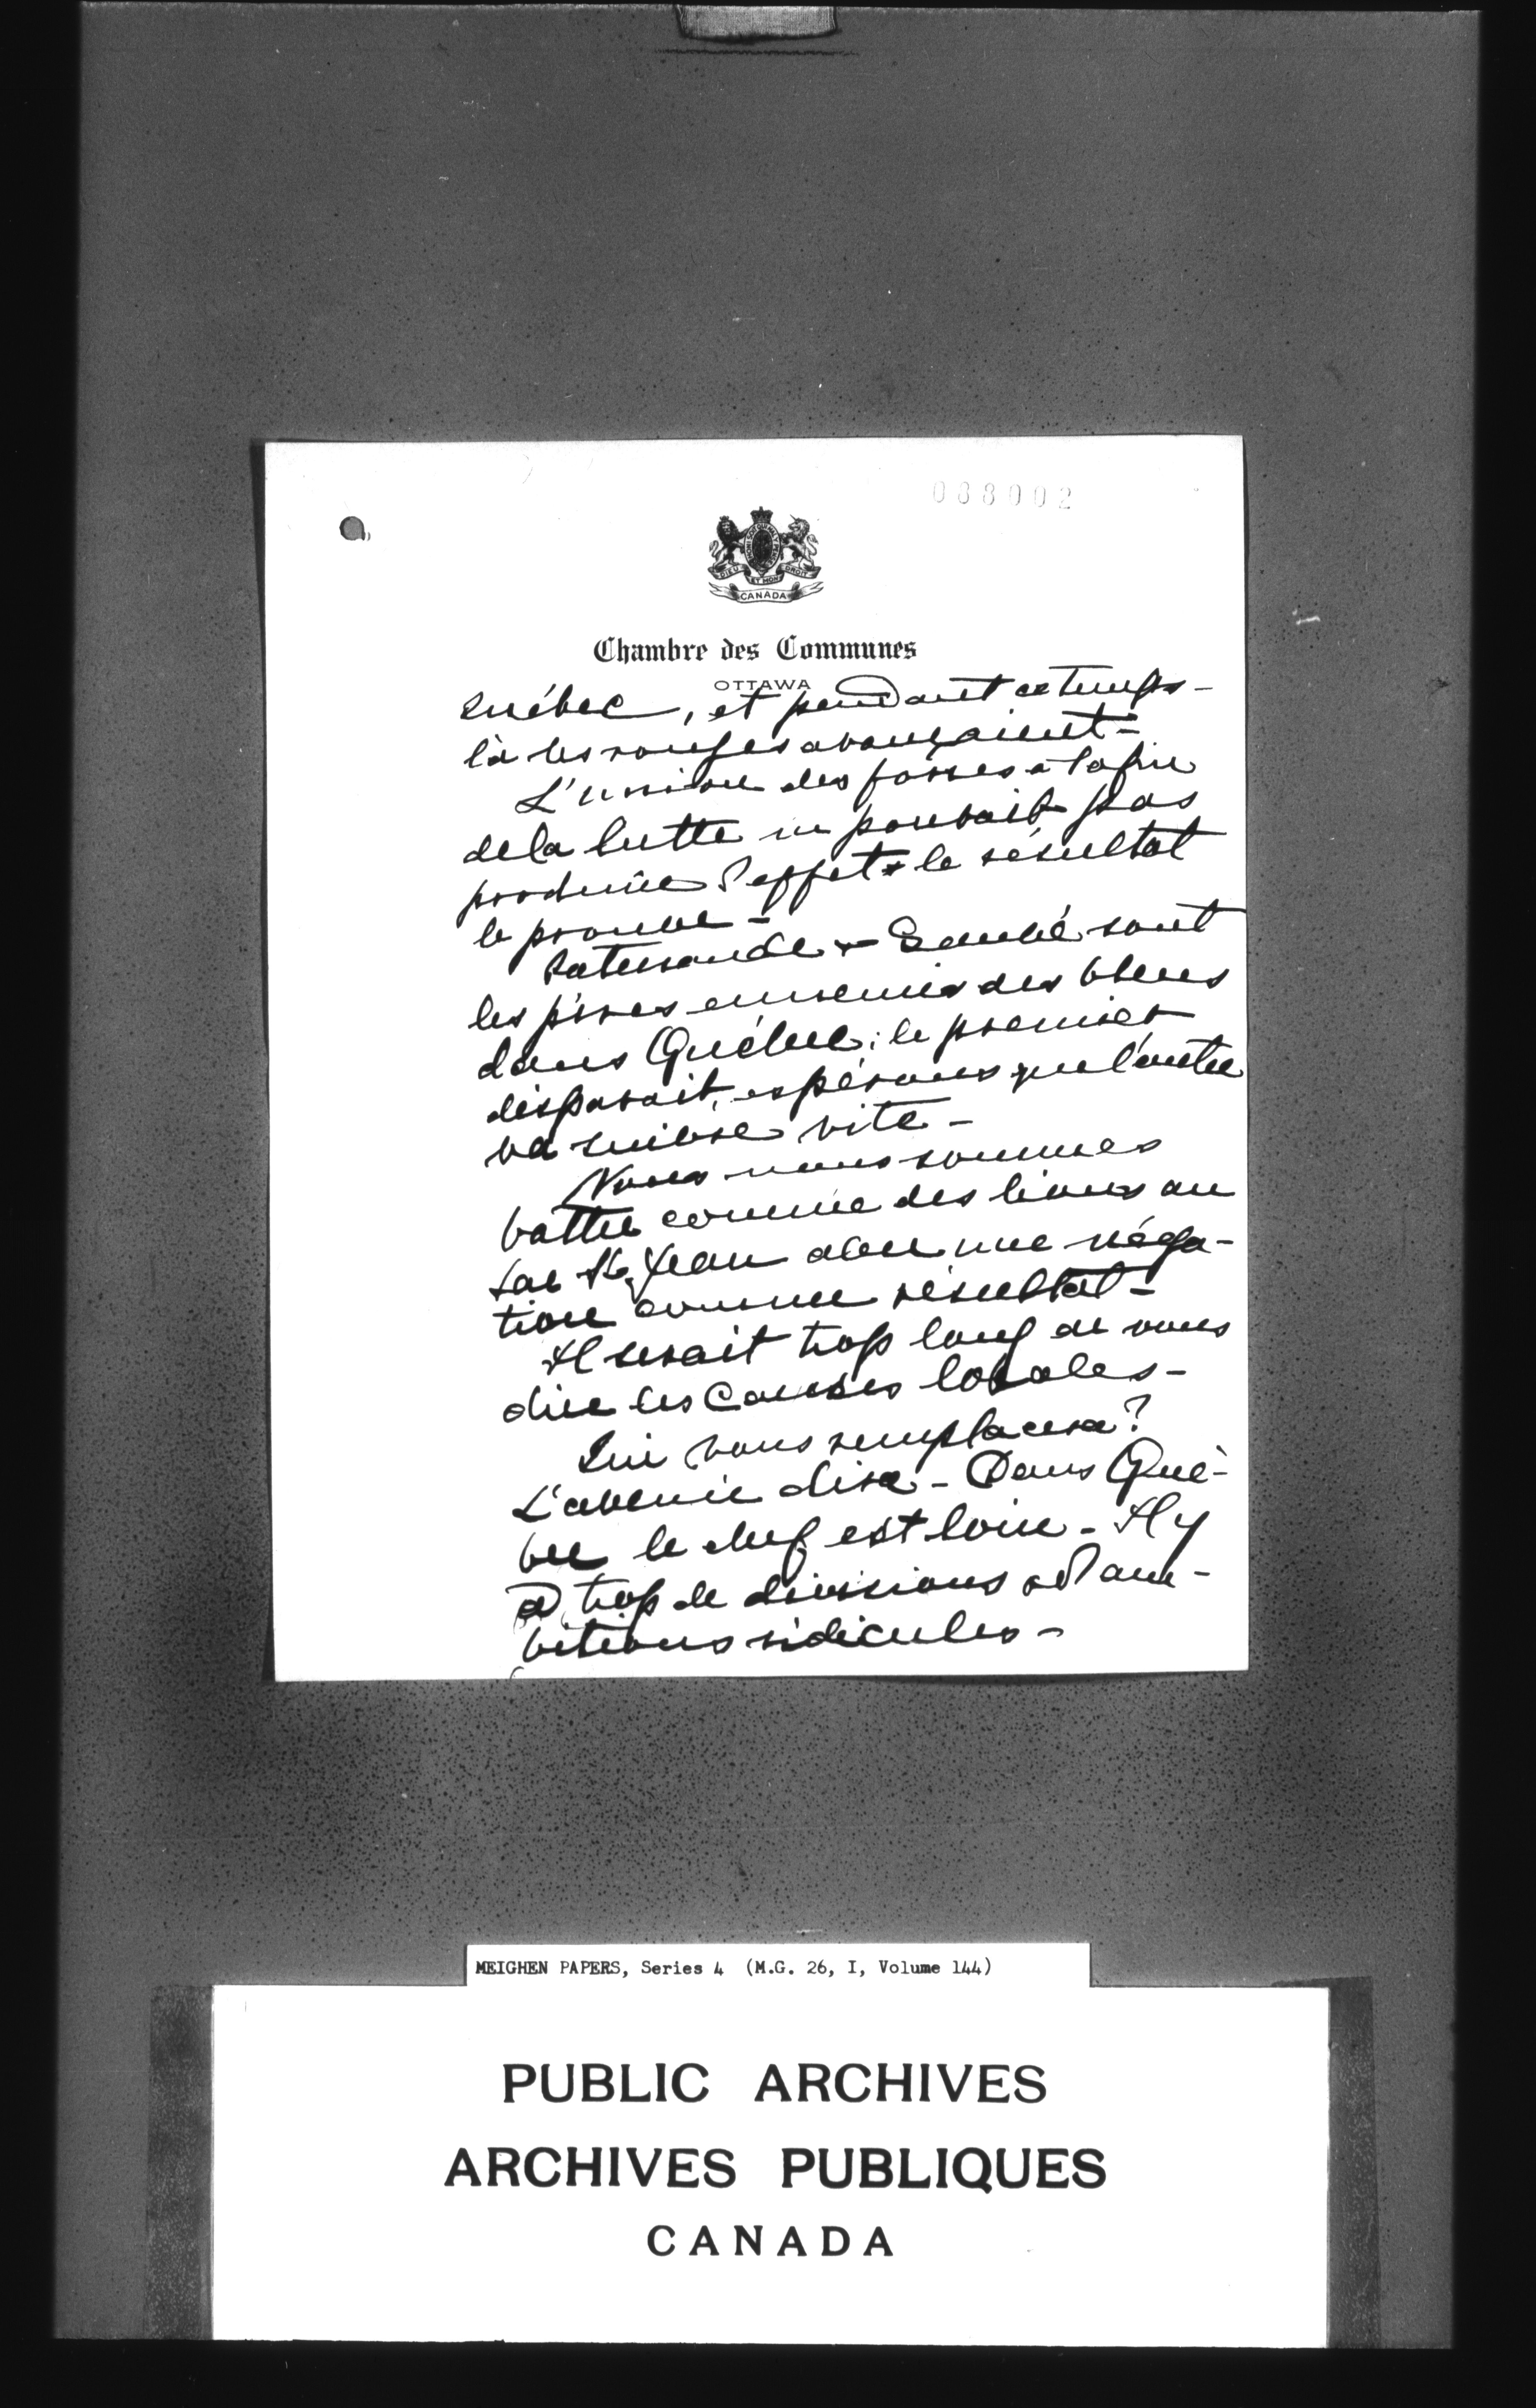 088002
DIEU ET MON DROIT
CANADA
Chambre des Communes
OTTAWA
Québec, et pendant ce temps-
là les rouges avançaient-
L'union des forces à la fin
de la lutte ne pouvait pas
produire l'effet & le résultat
le prouve-
Patenaude & Sauvé sont
les pires ennemis des bleus
dans Québec; le premier
disparait, espérons que l'autre
va suivre vite-
Nous nous sommes
battu comme des lions au
Lac St Jean avec une néga-
tion comme résultat-
Il serait trop long de vous
dire les causes locales-
Qui vous remplacera?
L'avenir dira- Dans Qué-
bec le chef est loin- Il y
a trop de divisions & d'am-
bitions ridicules-
MEIGHEN PAPERS, Series 4 (M.G. 26, I, Volume 144)
PUBLIC ARCHIVES
ARCHIVES PUBLIQUES
CANADA